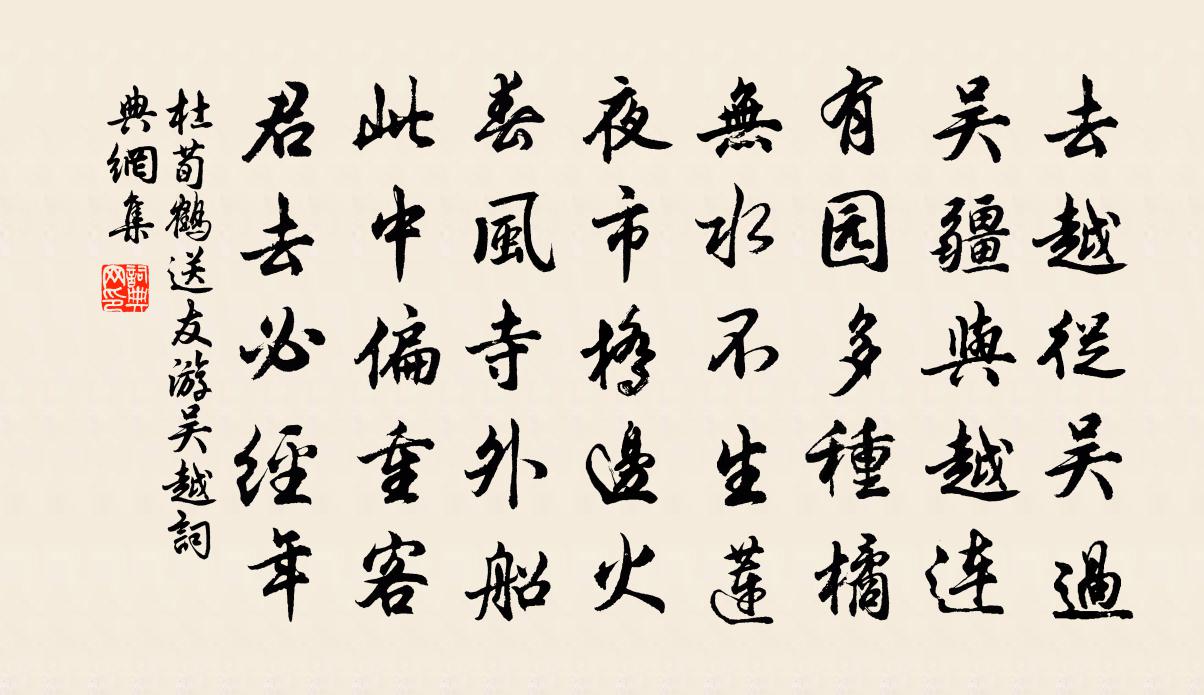 去越從吴過
吴疆與越連
有园多種橘
無水不生蓮
夜市橋邊火
春風寺外船
此中偏重客
君去必經年
杜荀鶴送友游吴越詞
典網集
詞典网印